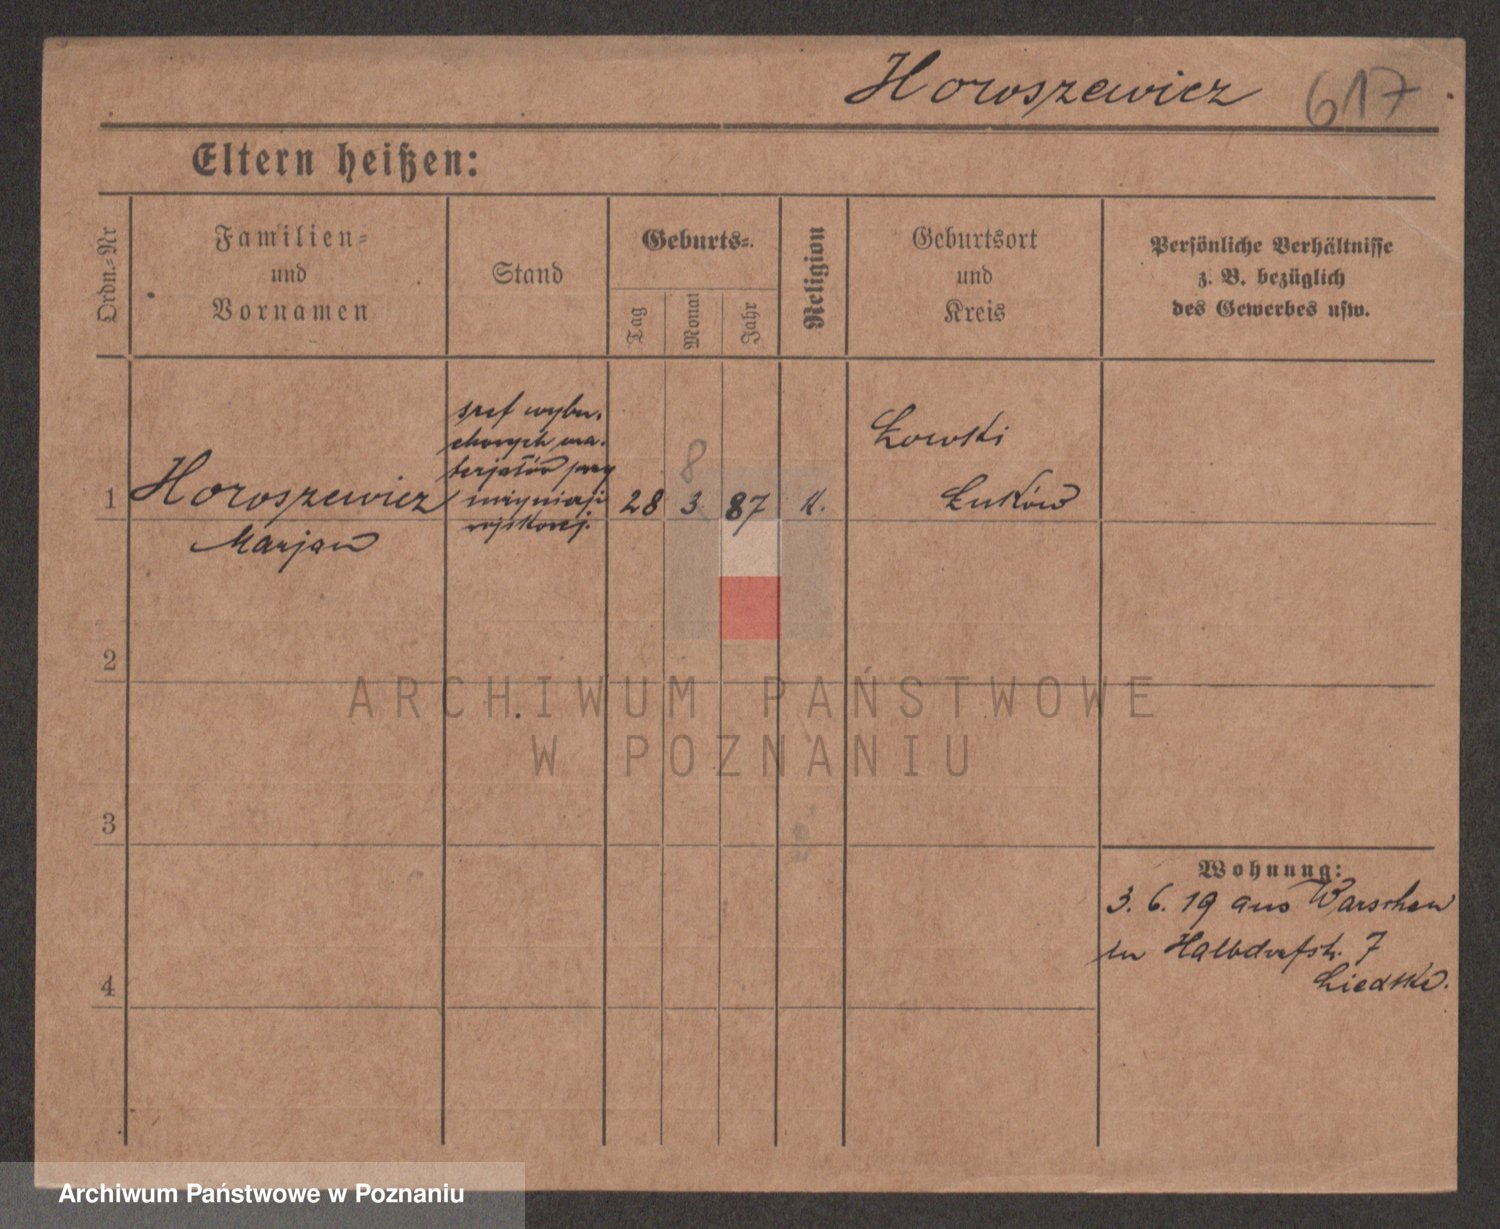 Horoszewicz 617
Eltern heißen:
Ordn.-Nr
Familien-
und
Vornamen
Stand
Geburts-
Tag
Monat
Jahr
Religion
Geburtsort
und
Kreis
Persönliche Verhältnisse
z. B. bezüglich
des Gewerbes usw.
szef wybu-
chowych ma-
terjałów przy
inżynierji
wojskowej.
8
1 Horoszewicz 28 3 87 K.
Marjan
Łowski
Łuków
2
3
4
Wohnung:
3. 6. 19 aus Warschau
Halbdorfstr. 7
ARCHIWUM PAŃSTWOWE
W POZNANIU
Archiwum Państwowe w Poznaniu